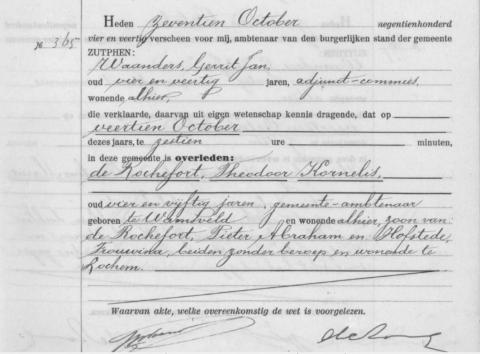 Heden zeventien October negentienhonderd
№ 365 vier en veertig verscheen voor mij, ambtenaar van den burgerlijken stand der gemeente
ZUTPHEN:
Waanders, Gerrit Jan,
oud vier en veertig jaren, adjunct-commies,
wonende alhier,
die verklaarde, daarvan uit eigen wetenschap kennis dragende, dat op
veertien October
dezes jaars, te zestien ure minuten,
in deze gemeente is overleden:
de Rochefort, Theodoor Kornelis,
oud vier en vijftig jaren, gemeente-ambtenaar
geboren te Warnsveld en wonende alhier, zoon van:
de Rochefort, Pieter Abraham en Hofstede,
Trouwina, beiden zonder beroep en wonende te
Lochem.
Waarvan akte, welke overeenkomstig de wet is voorgelezen.